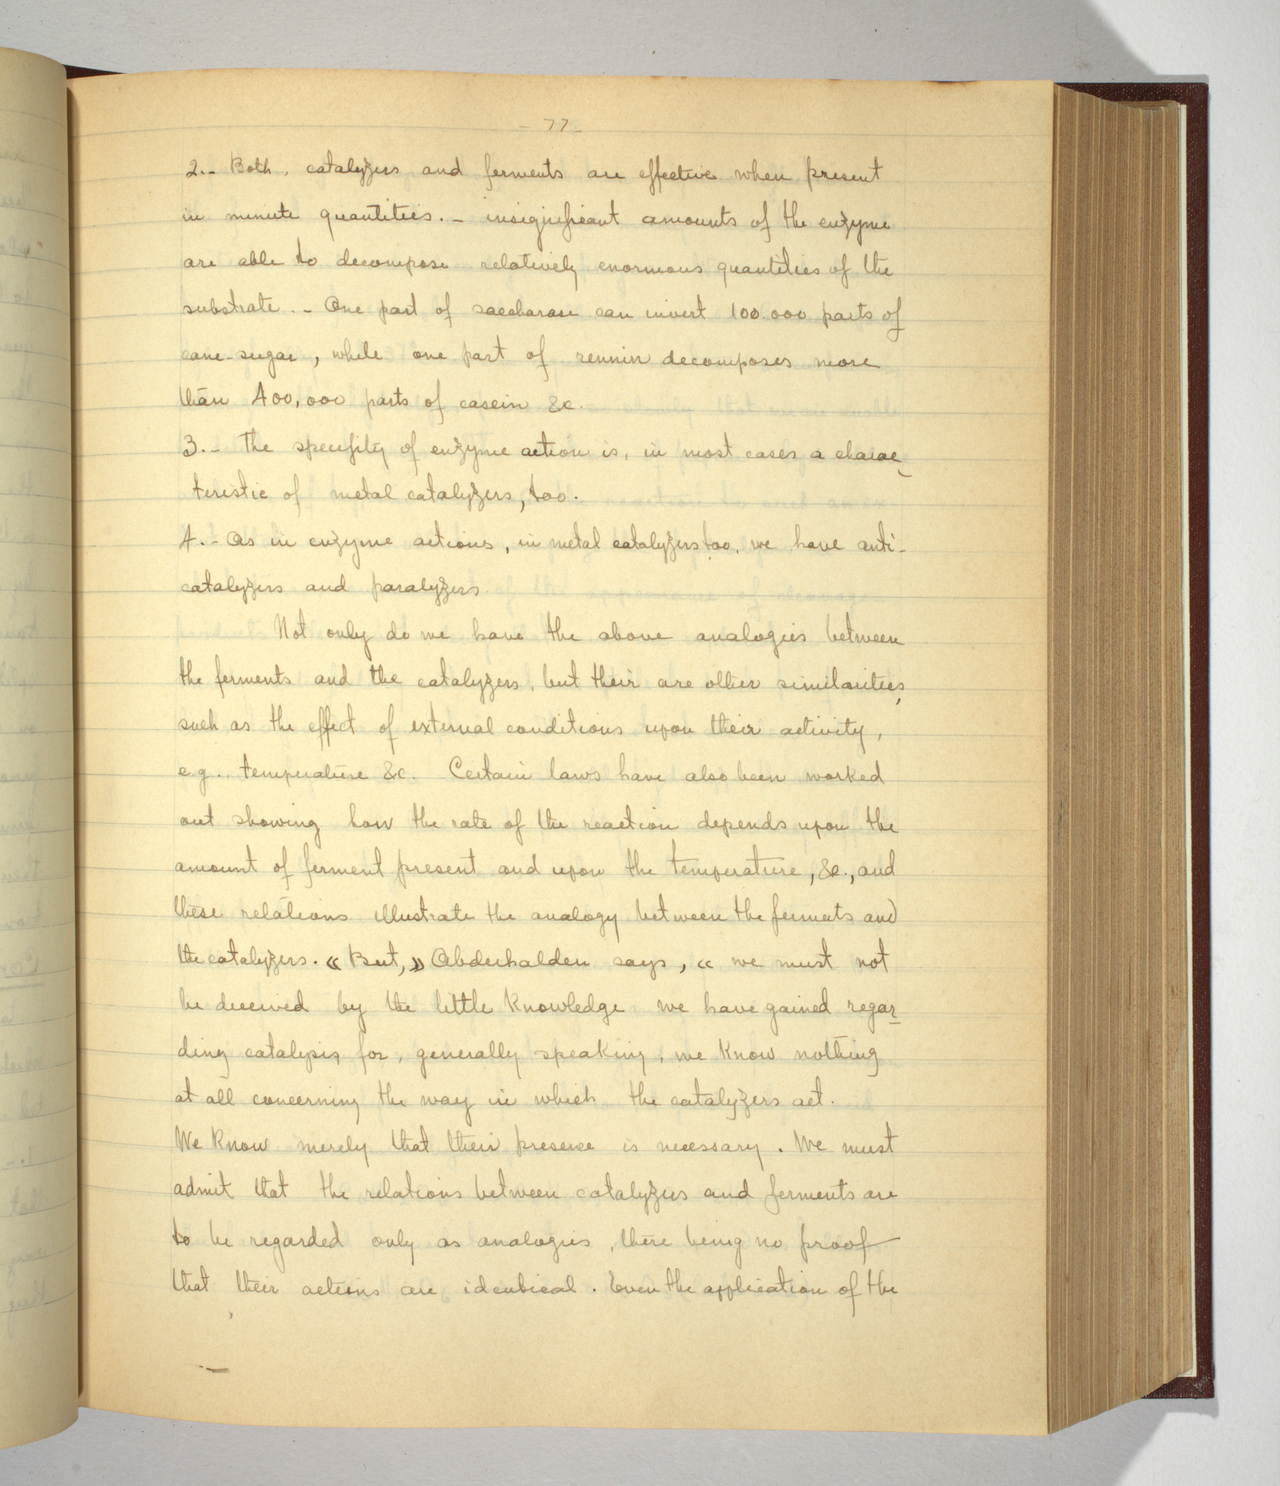 - 77 -
2.- Both, catalyzers and ferments are effective when present
in minute quantities. - insignificant amounts of the enzyme
are able to decompose relatively enormous quantities of the
substrate. - One part of saccharase can invert 100.000 parts of
cane-sugar, while one part of rennin decomposes more
than 400,000 parts of casein &c.
3.- The specifity of enzyme action is, in most cases a charac-
teristic of metal catalyzers, too.
4.- As in enzyme actions, in metal catalyzers too, we have anti-
catalyzers and paralyzers
Not only do we have the above analogies between
the ferments and the catalyzers, but their are other similarities,
such as the effect of external conditions upon their activity,
e.g.. temperature &c. Certain laws have also been worked
out showing how the rate of the reaction depends upon the
amount of ferment present and upon the temperature, &c., and
these relations illustrate the analogy between the ferments and
the catalyzers. « But, » Abderhalden says, « we must not
be deceived by the little knowledge we have gained regar-
ding catalysis, for, generally speaking, we know nothing
at all concerning the way in which the catalyzers act.
We know merely that their presence is necessary. We must
admit that the relations between catalyzers and ferments are
to be regarded only as analogies, there being no proof
that their actions are identical. Even the application of the